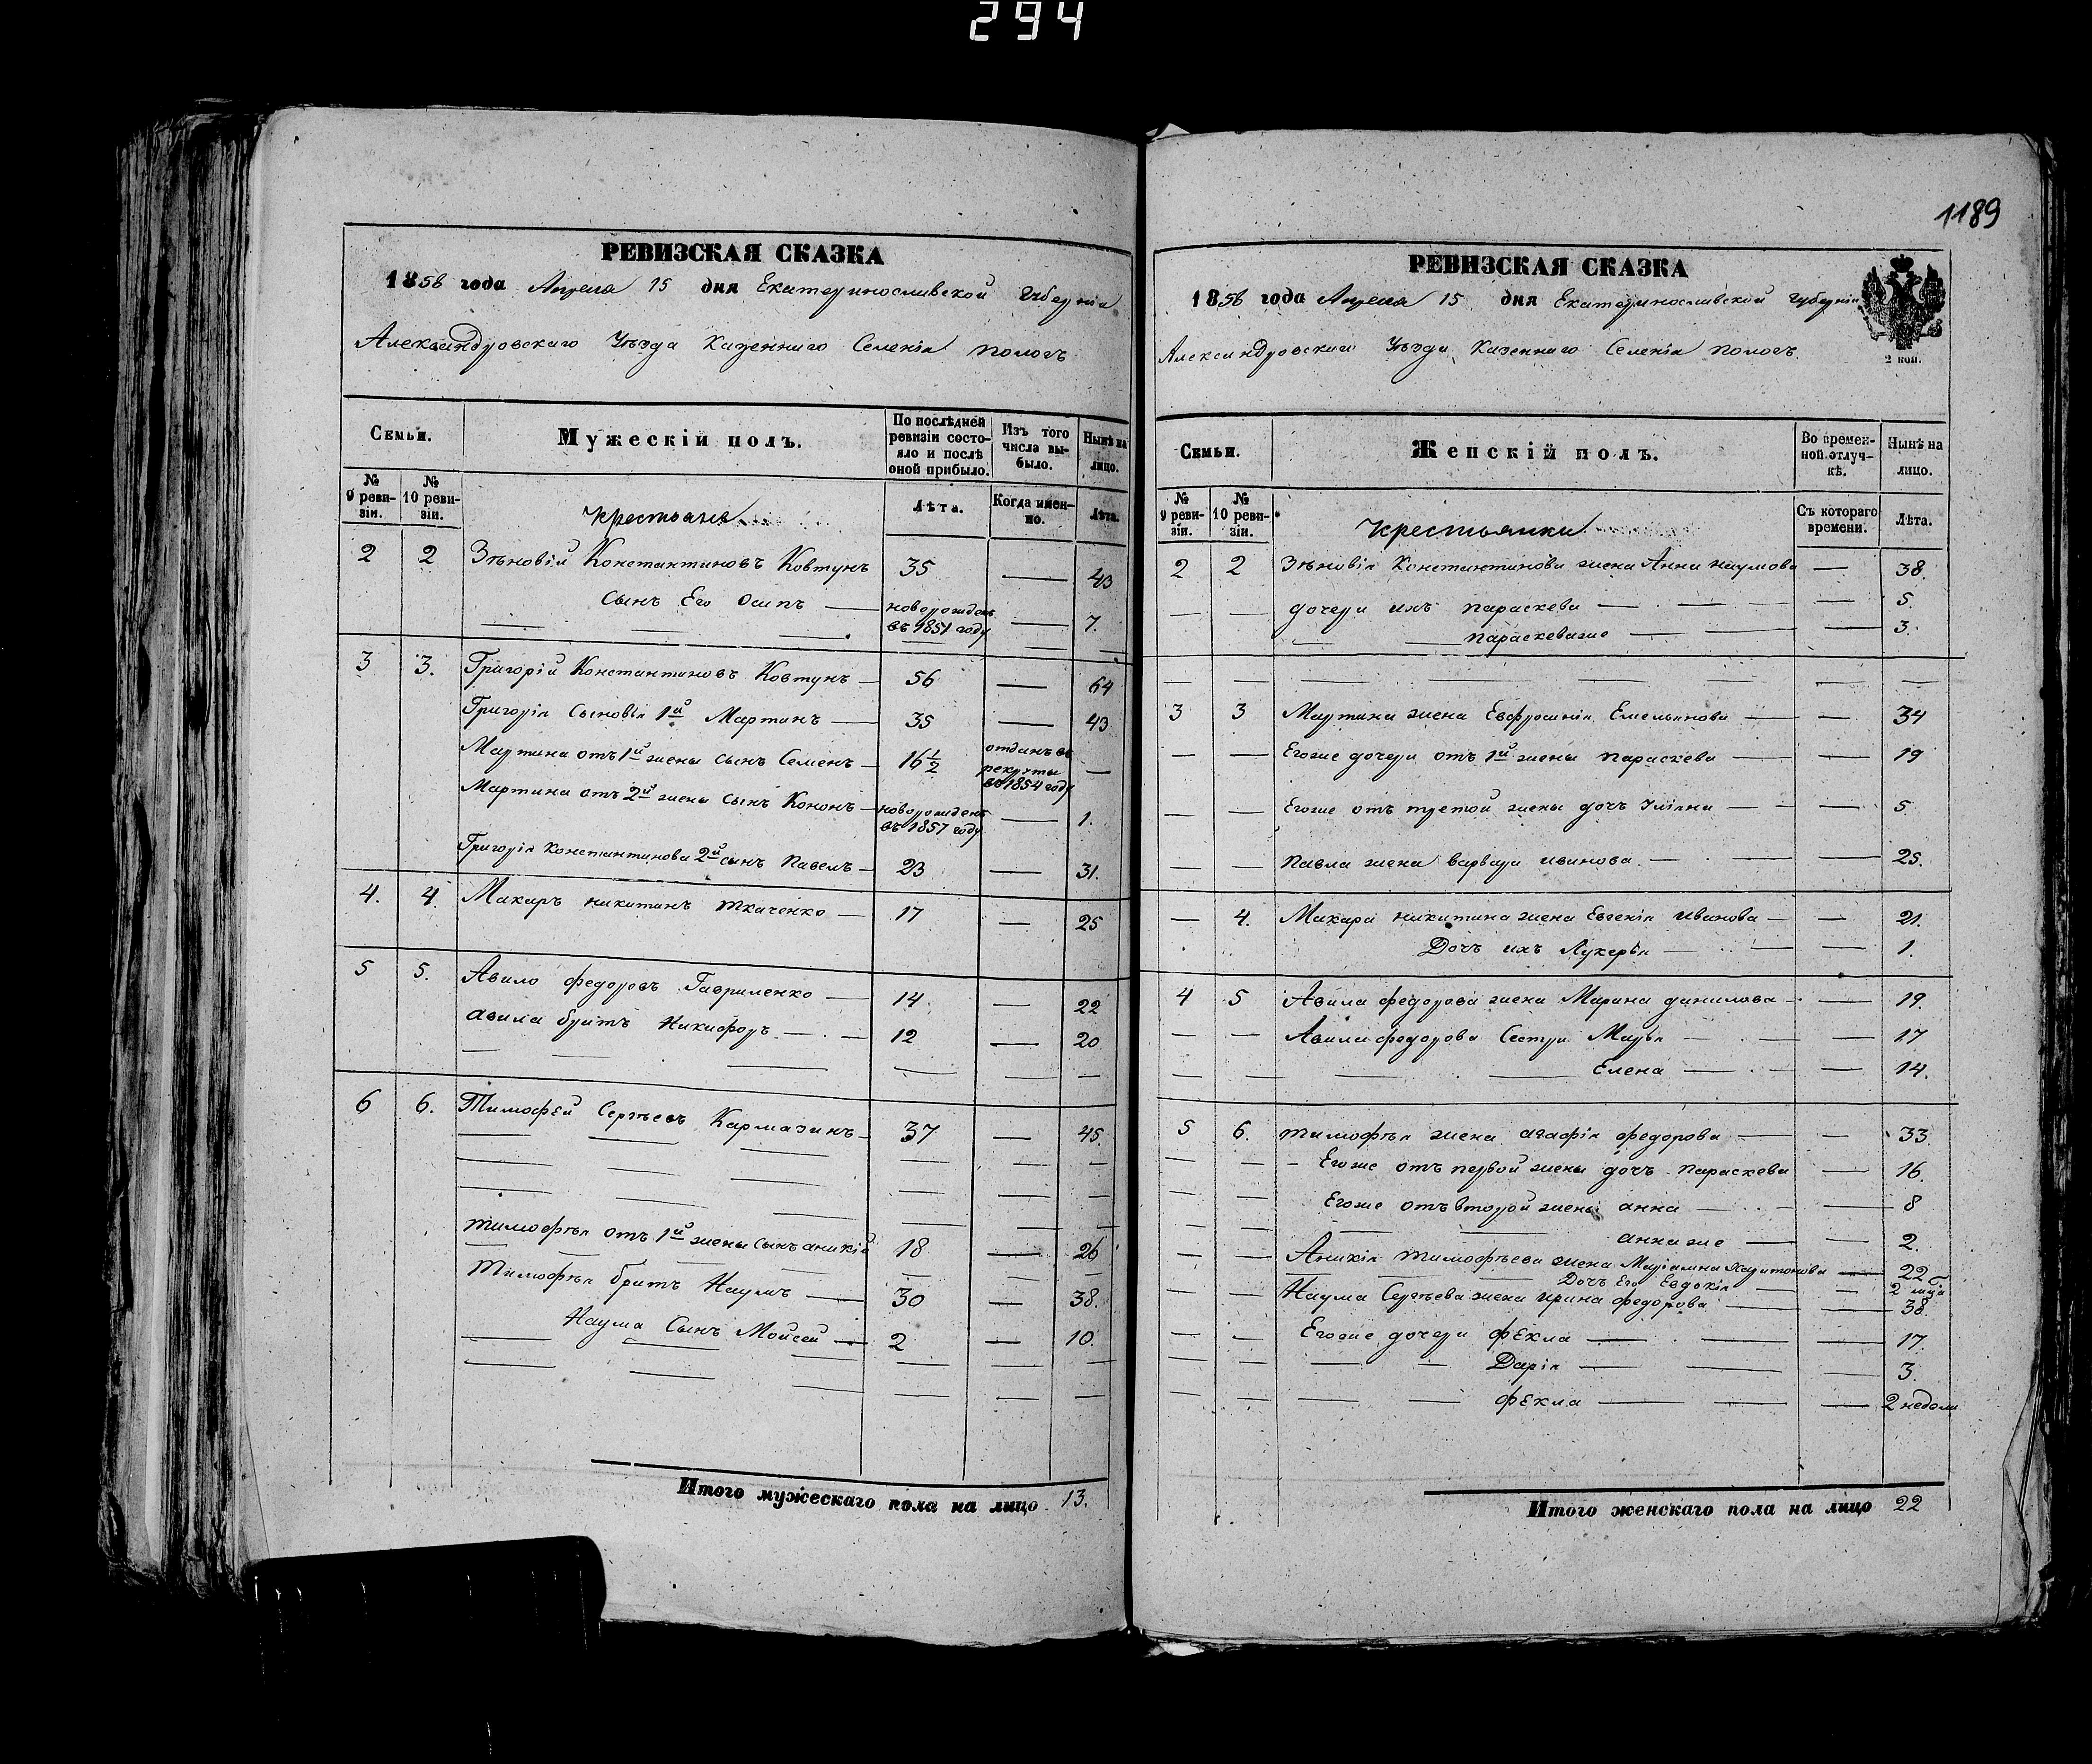 294
РЕВИЗСКАЯ СКАЗКА
1858 года Апреля 15 дня Екатеринославской Губерніи
Александровскаго Уѣзда Казеннаго Селенія Пологъ
Семьи.
Мужескій полъ.
По послѣдней ревизіи состояло и послѣ оной прибыло.
Изъ того числа выбыло.
Нынѣ на лицо.
№ 9 ревизіи.
№ 10 ревизіи.
Крестьяне
Лѣта.
Когда именно.
Лѣта.
2 2 Зѣновій Константиновъ Ковтунъ 35 — 43
Сынъ Его Осипъ — новорожденъ въ 1851 году — 7.
3 3. Григорій Константиновъ Ковтунъ — 56 — 64
Григорія Сыновья 1й Мартинъ — 35 — 43
Мартина отъ 1й жены сынъ Семенъ — 16½ отданъ въ рекруты въ 1854 году —
Мартина отъ 2й жены сынъ Кононъ — новорожденъ въ 1857 году — 1.
Григорія Константинова 2й сынъ Павелъ — 23 — 31.
4. 4. Макаръ Никитинъ Ткаченко — 17 — 25
5 5. Авило Федоровъ Гавриленко — 14. — 22
Авила братъ Никифоръ — 12 — 20
6 6. Тимофей Сергѣевъ Кармазинъ — 37 — 45.
Тимофѣя отъ 1й жены сынъ Аникій 18 — 26
Тимофѣя братъ Наумъ — 30 — 38.
Наума Сынъ Мойсей — 2 — 10.
Итого мужескаго пола на лицо 13.
1189
РЕВИЗСКАЯ СКАЗКА
1858 года Апреля 15 дня Екатеринославской Губерніи
Александровскаго Уѣзда Казеннаго Селенія Пологъ.
2 коп.
Семьи.
Женскій полъ.
Во временной отлучкѣ.
Нынѣ на лицо.
№ 9 ревизіи.
№ 10 ревизіи.
Крестьянки
Съ котораго времени.
Лѣта.
2 2 Зѣновія Константинова жена Анна Наумова — 38.
— — дочери ихъ Параскева — — 5.
— Параскева же — — 3.
3 3 Мартина жена Евфросинія Емельянова — — 34
— — Егоже дочери отъ 1й жены Параскева — — 19
— — Егоже отъ третой жены дочь Уліяна — — 5.
— — Павла жена Варвара Иванова. — — 25.
— 4. Макара Никитина жена Евгенія Иванова — — 21.
Дочь ихъ Лукерья — — 1.
4 5 Авила Федорова жена Марина Данилова — — 19.
— — Авила Федорова Сестры Марья — — 17
— — Елена — — 14.
5 6. Тимофѣя жена Агафія Федорова — — 33.
— — Егоже отъ первой жены дочь Параскева — 16.
— Егоже отъ второй жены Анна — — 8
— — Анна же — 2.
— — Аникія Тимофѣева жена Маріамна Харитонова — 22
Дочь Его Евдокія — — 2 мца
— — Наума Сергѣева жена Ирина Федорова — — 38.
— — Егоже дочери Фекла — — 17.
— — Дарія — — 3.
— — Фекла — — 2 недели
Итого женскаго пола на лицо 22